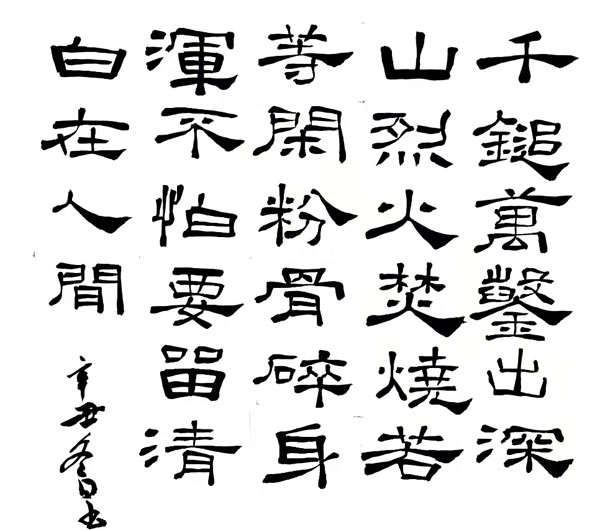 千鎚萬鑿出深
山烈火焚燒若
等閑粉骨碎身
渾不怕要留清
白在人間
辛丑冬月書